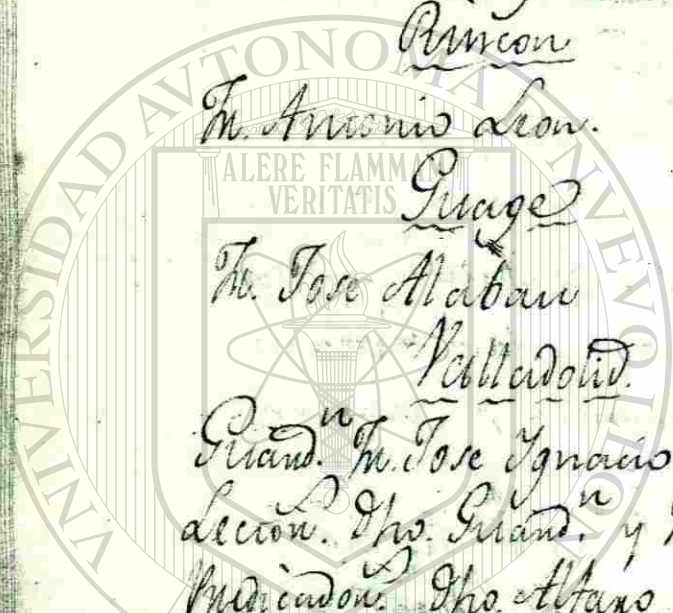 Rincon
Fr. Antonio Leon.
Guage
Fr. Jose Alaban
Valladolid.
Guard.n Fr. Jose Ygnacio
Leccion.s Dho. Guard.n y
Predicadon.s Dho. Alfaro
UNIVERSIDAD AVTONOMA DE NVEVO LEON
ALERE FLAMMAM
VERITATIS